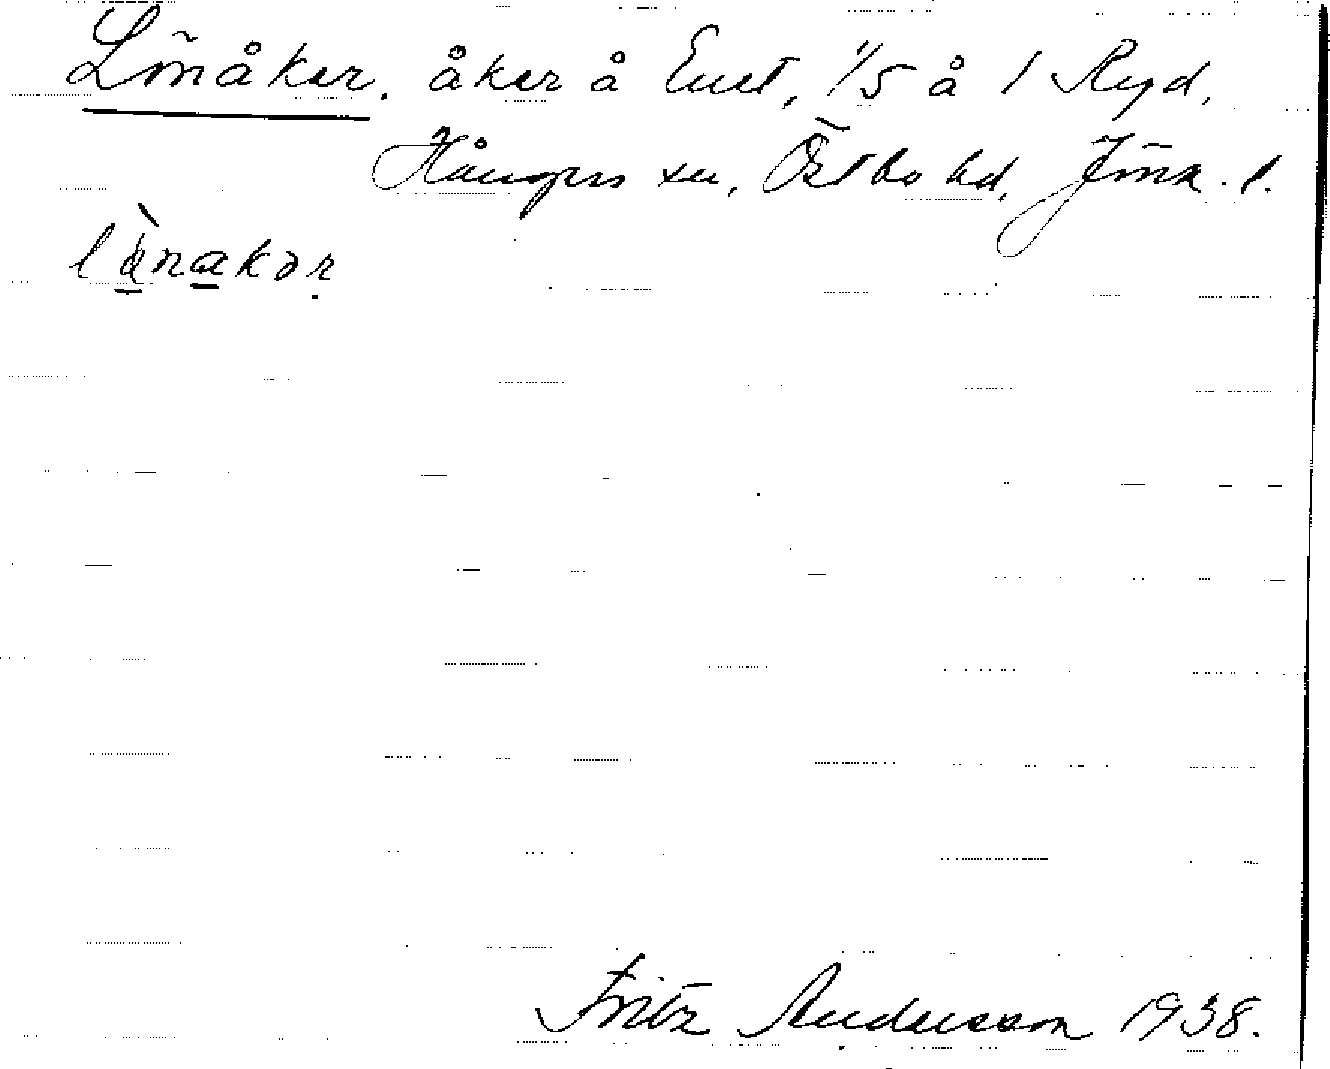 Lönåker, åker å Enet, 1/5 å 1 Ryd,
Hångers sn, Östbo hd, Jönk. l.
lànakər
Fritz Andersson 1938.